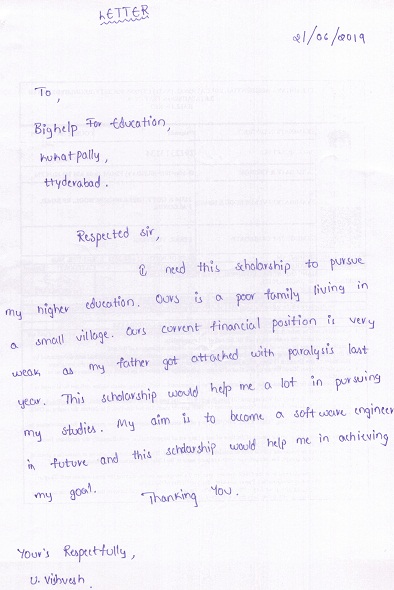 LETTER
21/06/2019
To,
Bighelp For Education,
kukatpally,
Hyderabad.
Respected sir,
I need this scholarship to pursue
my higher education. Ours is a poor family living in
a small village. Ours current financial position is very
weak as my father got attached with paralysis last
year. This scholarship would help me a lot in pursuing
my studies. My aim is to become a software engineer
in future and this scholarship would help me in achieving
my goal. Thanking You.
Your's Respectfully,
U. Vishvesh.